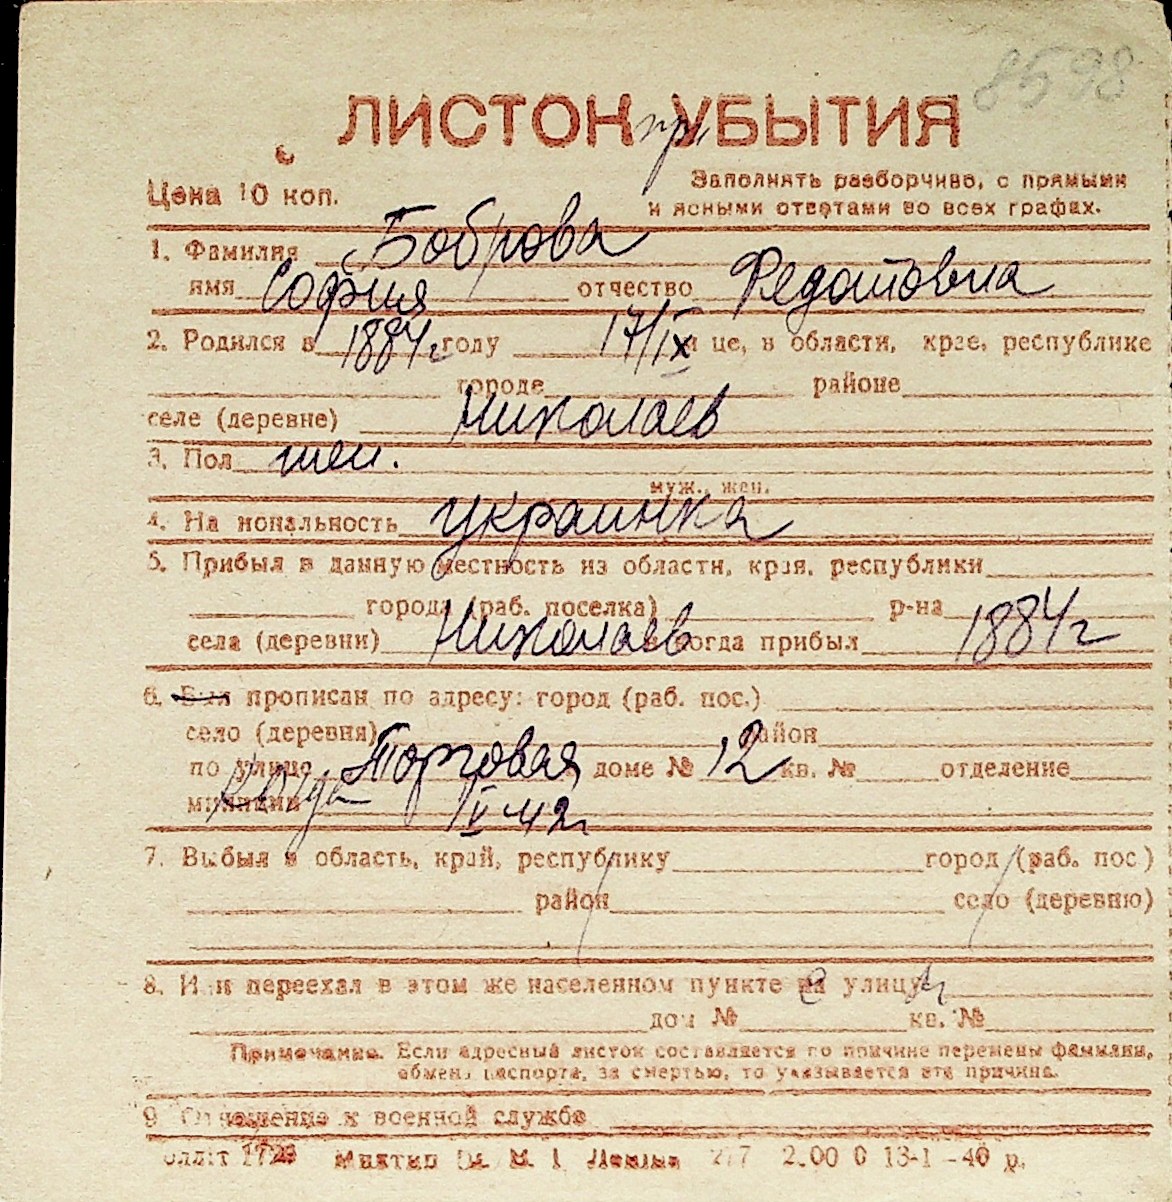 8598
ЛИСТОК при УБЫТИЯ
Цена 10 коп.
Заполнять разборчиво, с прямыми
и ясными ответами во всех графах.
1. Фамилия Боброва
имя София отчество Федотовна
2. Родился в 1884г году 17/IX це, в области, крае, республике
городе районе
селе (деревне) Николаев
3. Пол жен.
муж., жен.
4. На иональность украинка
5. Прибыл в данную местность из области, края, республики
города (раб. поселка) р-на
села (деревни) Николаев когда прибыл 1884г
6. Был прописан по адресу: город (раб. пос.)
село (деревня) район
по улице Торговая доме № 12 кв. № отделение
милиции когда IV-42г
7. Выбыл в область, край, республику город (раб. пос)
район село (деревню)
8. И и переехал в этом же населенном пункте улицу
дом № кв. №
Примечание. Если адресный листок составляется по причине перемены фамилии,
обмена паспорта, за смертью, то указывается эта причина.
9 Отношение к военной службе
13-1-40 р.